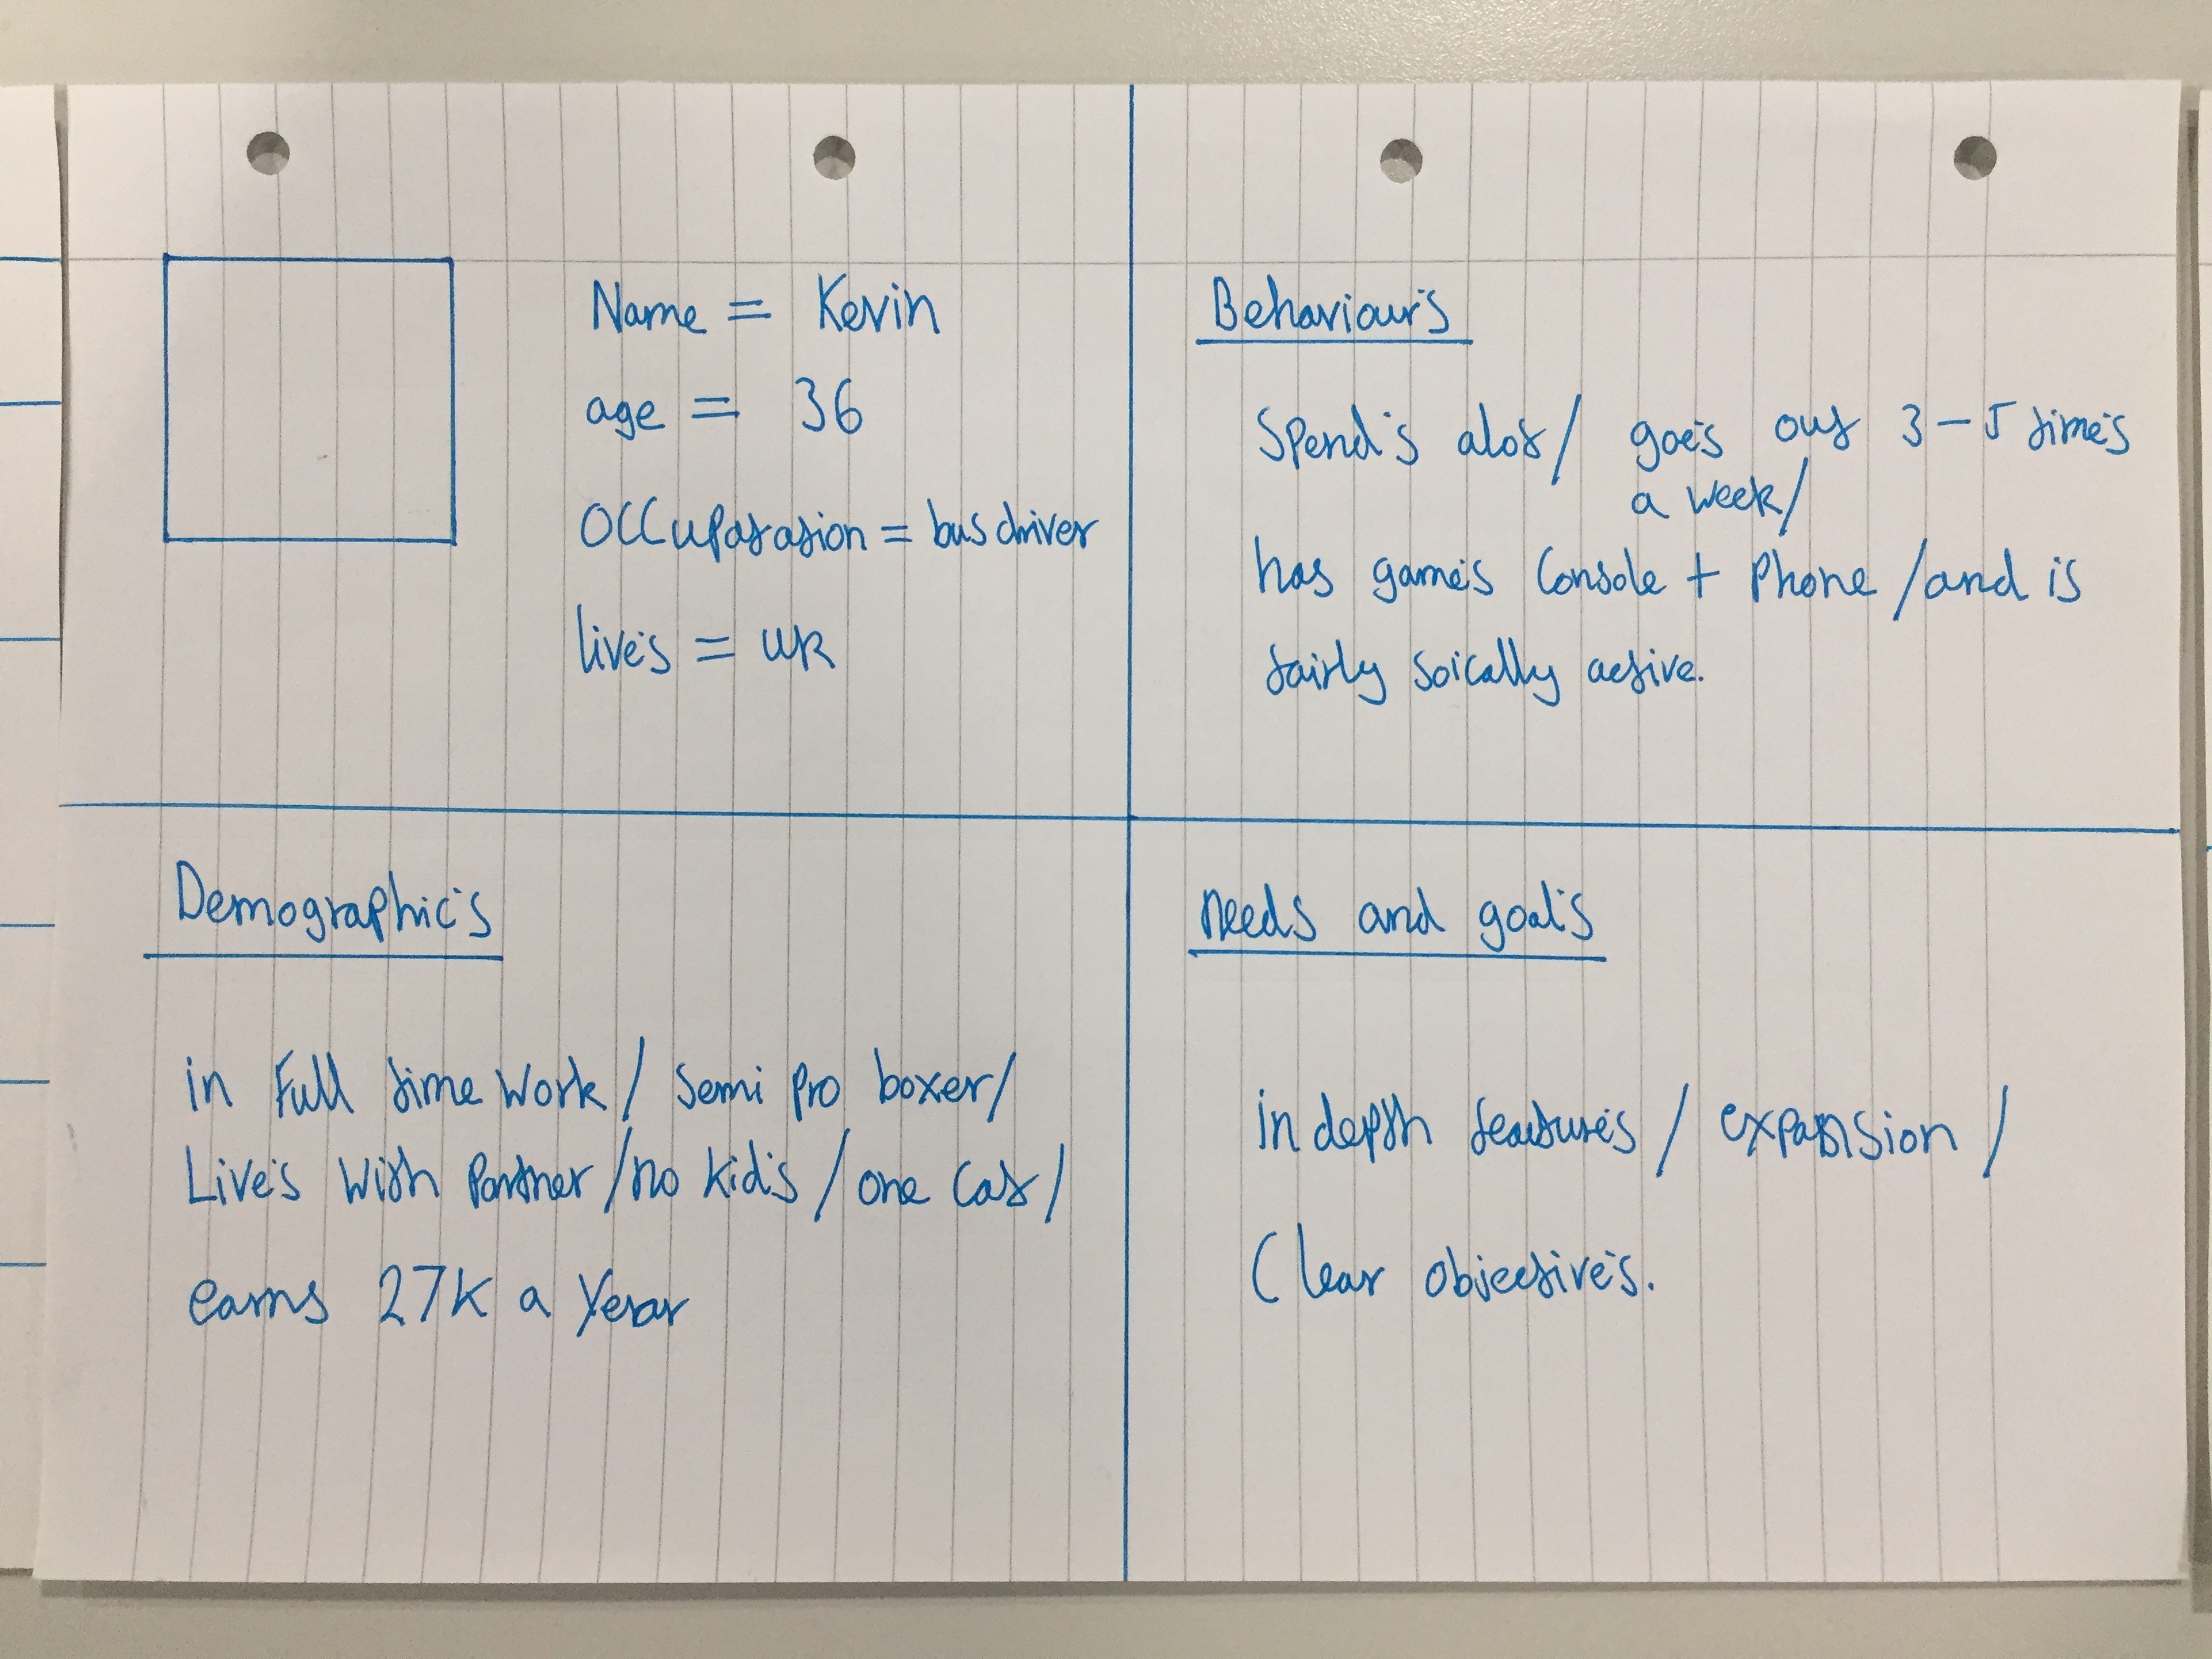 Name = Kevin
age = 36
Occupatation = bus driver
lives = UK
Behaviours
Spends alot / goes out 3-5 times
a week /
has games console + phone / and is
fairly soically active.
Demographics
in full time work / semi pro boxer /
Lives with partner / no kids / one cat /
earns 27K a year
needs and goals
in depth features / expansion /
Clear objectives.